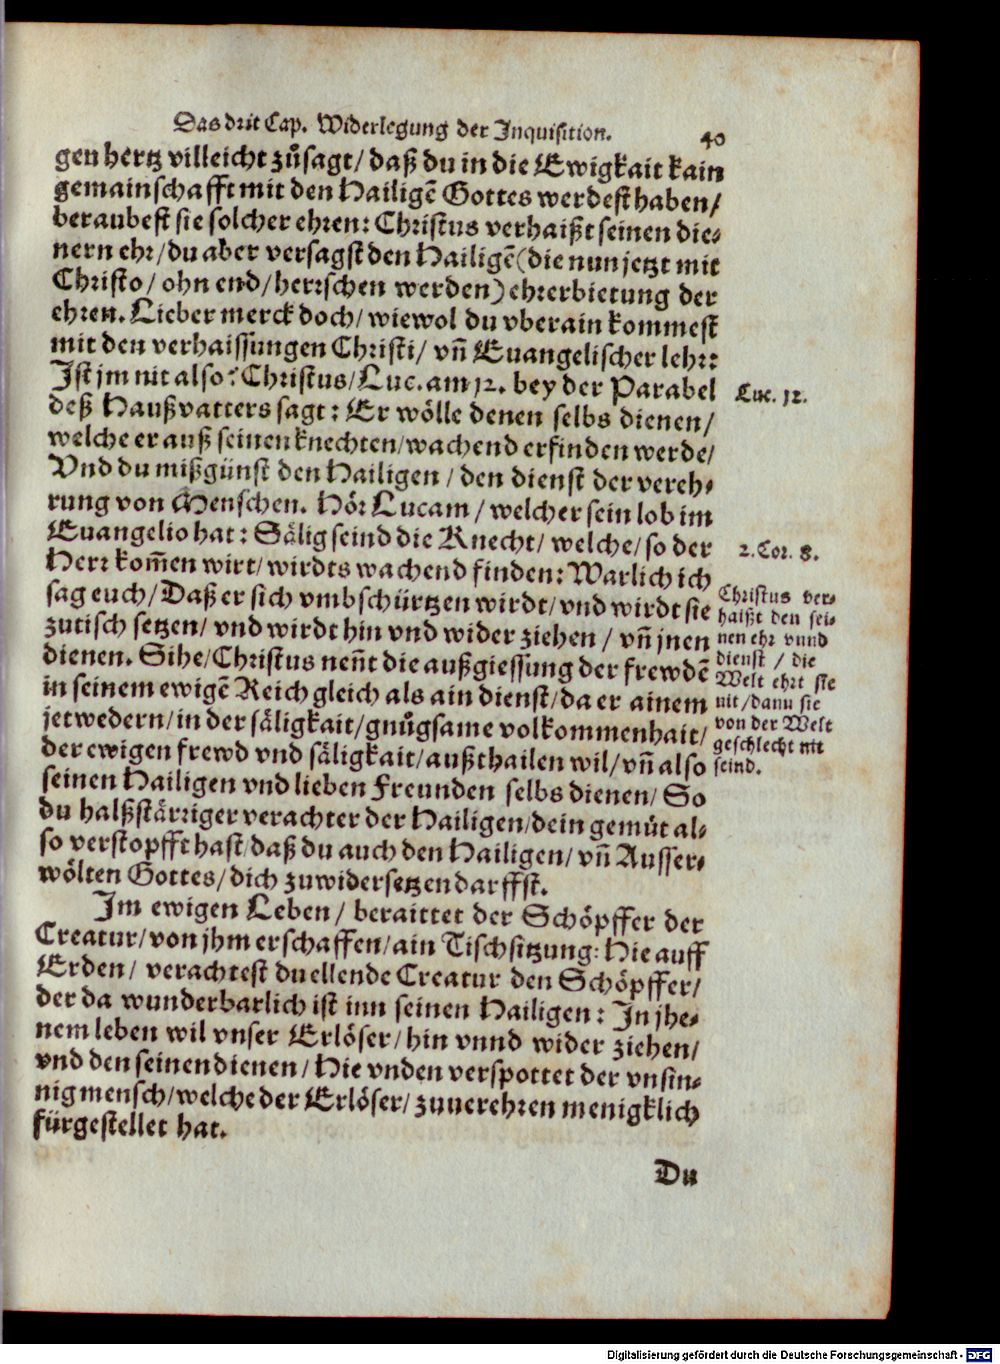 Das drit Cap. Widerlegung der Inquisition. 40
gen hertz villeicht zůsagt/ daß du in die Ewigkait kain
gemainschafft mit den Hailigẽ Gottes werdest haben/
beraubest sie solcher ehren: Christus verhaißt seinen die-
nern ehr/ du aber versagst den Hailigẽ (die nun jetzt mit
Christo/ ohn end/ herrschen werden) ehrerbietung der
ehren. Lieber merck doch/ wiewol du vberain kommest
mit den verhaissungen Christi/ vñ Euangelischer lehr:
Ist jm nit also? Christus/ Luc. am 12. bey der Parabel
deß Haußvatters sagt: Er wölle denen selbs dienen/
welche er auß seinen knechten/ wachend erfinden werde/
Vnd du mißgünst den Hailigen / den dienst der vereh-
rung von Menschen. Hör Lucam / welcher sein lob im
Euangelio hat: Sälig seind die Knecht/ welche/ so der
Herr kom̃en wirt/ wirdts wachend finden: Warlich ich
sag euch/ Daß er sich vmbschürtzen wirdt/ vnd wirdt sie
zutisch setzen/ vnd wirdt hin vnd wider ziehen / vñ jnen
dienen. Sihe/ Christus neñt die außgiessung der frewdẽ
in seinem ewigẽ Reich gleich als ain dienst/ da er ainem
jetwedern/ in der säligkait/ gnůgsame volkommenhait/
der ewigen frewd vnd säligkait/ außthailen wil/ vñ also
seinen Hailigen vnd lieben Freunden selbs dienen/ So
du halßstärriger verachter der Hailigen/ dein gemůt al-
so verstopfft hast/ daß du auch den Hailigen/ vñ Ausser-
wölten Gottes/ dich zuwidersetzen darffst.
Im ewigen Leben / beraittet der Schöpffer der
Creatur/ von jhm erschaffen/ ain Tischsitzung: Hie auff
Erden/ verachtest du ellende Creatur den Schöpffer/
der da wunderbarlich ist inn seinen Hailigen: In jhe-
nem leben wil vnser Erlöser/ hin vnnd wider ziehen/
vnd den seinen dienen/ Hie vnden verspottet der vnsin-
nig mensch/ welche der Erlöser/ zuuerehren menigklich
fürgestellet hat.
Du
Luc. 12.
2. Cor. 8.
Christus ver-
haißt den sei-
nen ehr vnnd
dienst / die
Welt ehrt sie
nit / dann sie
von der Welt
geschlecht nit
seind.
Digitalisierung gefördert durch die Deutsche Forschungsgemeinschaft - DFG